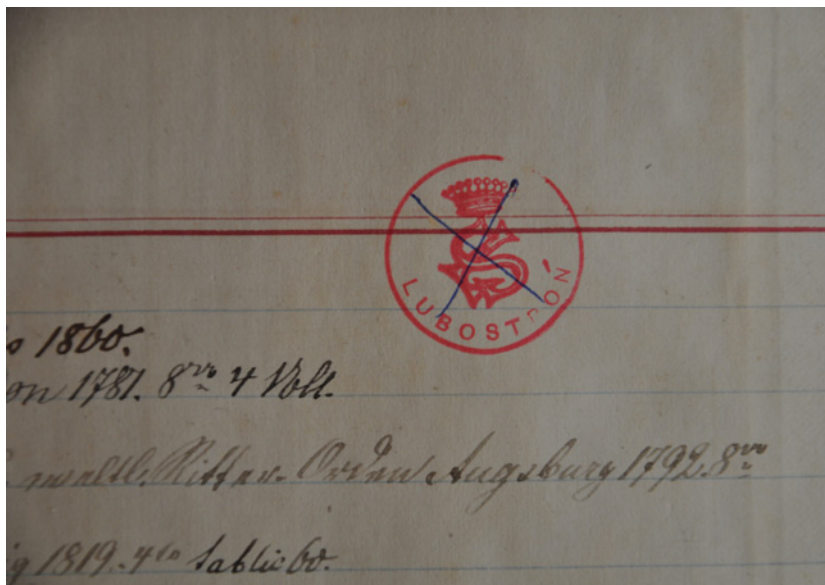 LUBOSTROŃ
1860.
1781. 8vo 4 Voll.
weltl. Ritter-Orden Augsburg 1792. 8vo
1819. 4to